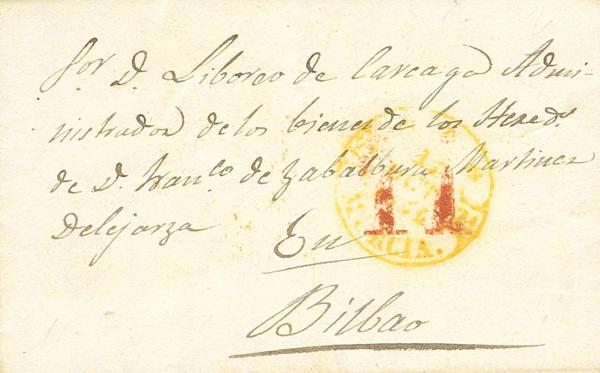 Sor D. Liboreo de Careaga Admi-
nistrador de los bienes de los Hered.s
de D. Fran.co de Zabalburu Martinez
Delejarza
En
Bilbao
11
MURCIA.